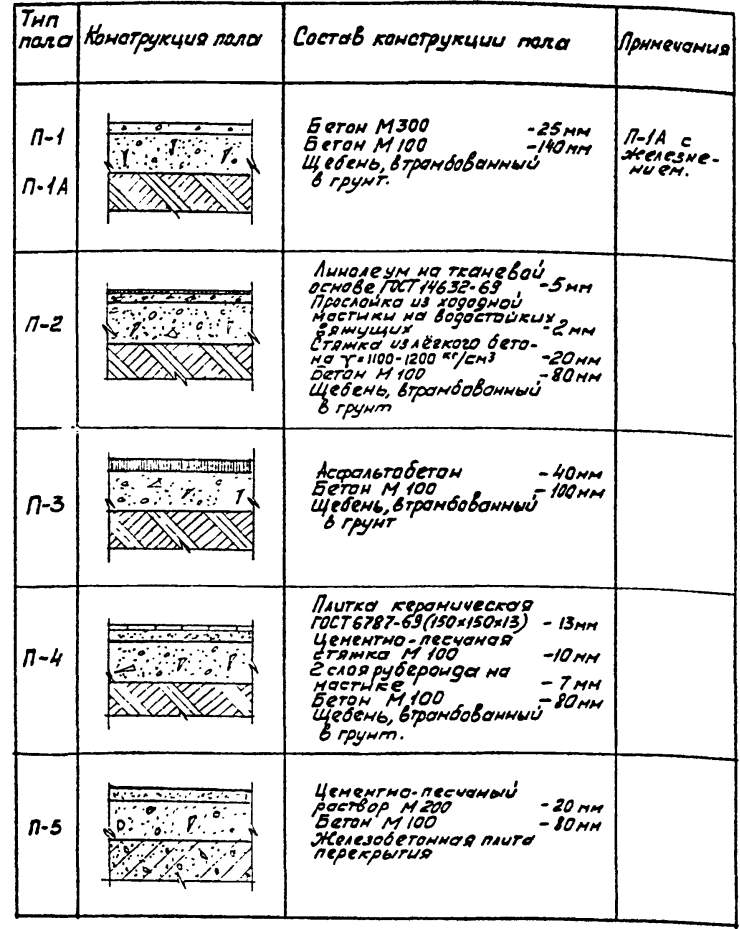 Тип пола
Конструкция пола
Состав конструкции пола
Примечания
П-1
П-1А
Бетон М300 -25мм
Бетон М100 -140мм
Щебень, втрамбованный
в грунт.
П-1А с
железне-
нием.
П-2
Линолеум на тканевой
основе ГОСТ 14632-69 -5мм
Прослойка из холодной
мастики на водостойких
вяжущих -2мм
Стяжка из лёгкого бето-
на γ=1100-1200 кг/см3 -20мм
Бетон М100 -80мм
Щебень, втрамбованный
в грунт
П-3
Асфальтобетон -40мм
Бетон М100 -100мм
Щебень, втрамбованный
в грунт
П-4
Плитка керамическая
ГОСТ 6787-69(150×150×13) -13мм
Цементно-песчаная
стяжка М100 -10мм
2 слоя рубероида на
мастике -7мм
Бетон М100 -80мм
Щебень, втрамбованный
в грунт.
П-5
Цементно-песчаный
раствор М200 -20мм
Бетон М100 -80мм
Железобетонная плита
перекрытия